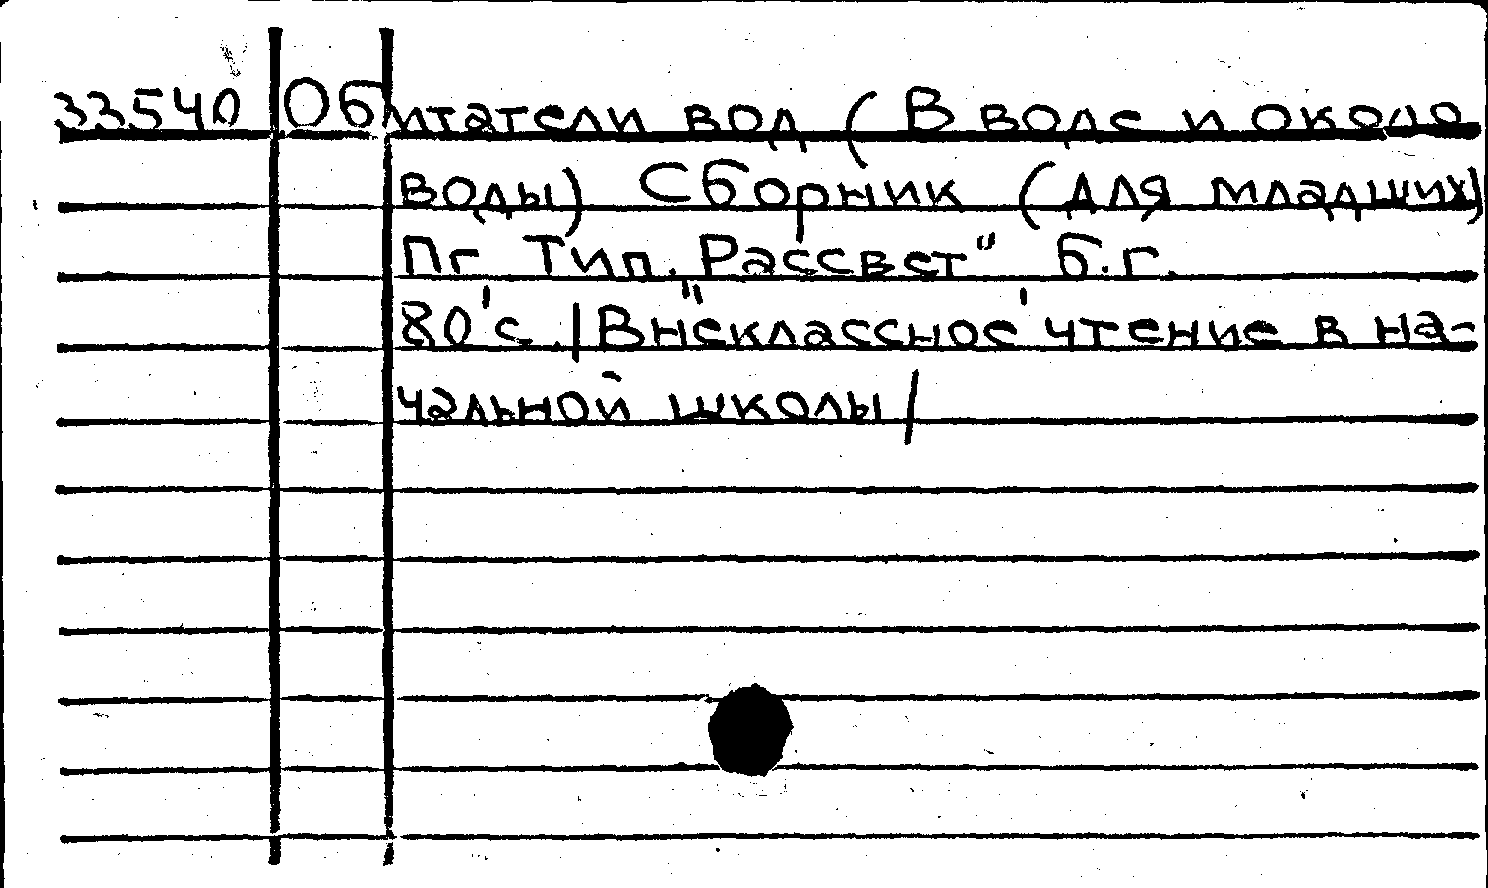 33540 Обитатели вод (В воде и около
воды) Сборник (для младших)
Пг Тип. „Рассвет" б.г.
80 с. / "Внеклассное чтение в на-
чальной школы/